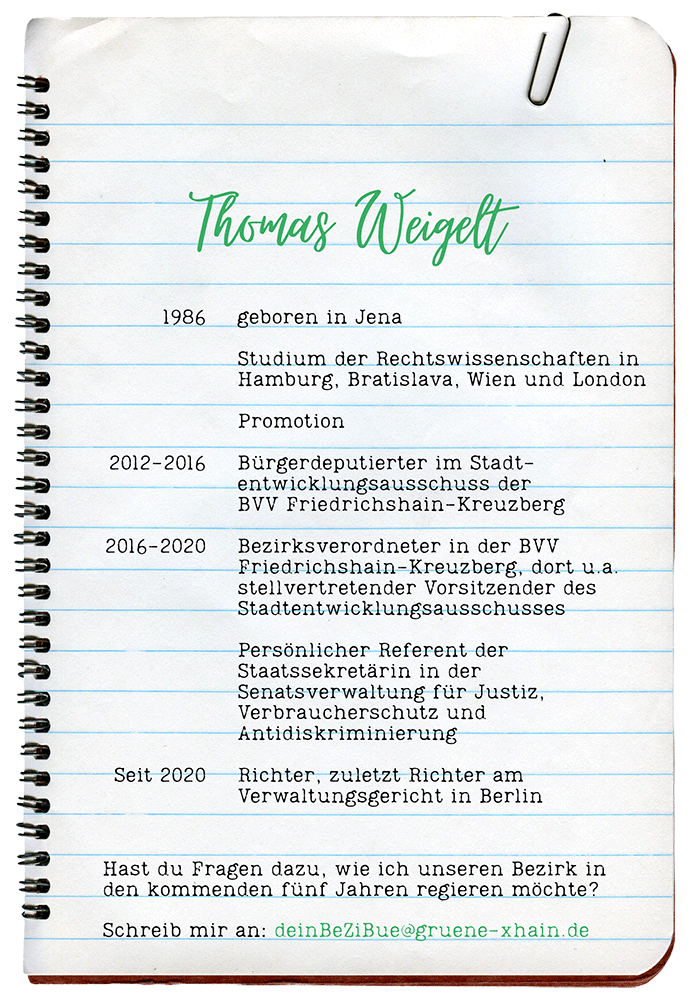 Thomas Weigelt
1986 geboren in Jena
Studium der Rechtswissenschaften in
Hamburg, Bratislava, Wien und London
Promotion
2012-2016 Bürgerdeputierter im Stadt-
entwicklungsausschuss der
BVV Friedrichshain-Kreuzberg
2016-2020 Bezirksverordneter in der BVV
Friedrichshain-Kreuzberg, dort u.a.
stellvertretender Vorsitzender des
Stadtentwicklungsausschusses
Persönlicher Referent der
Staatssekretärin in der
Senatsverwaltung für Justiz,
Verbraucherschutz und
Antidiskriminierung
Seit 2020 Richter, zuletzt Richter am
Verwaltungsgericht in Berlin
Hast du Fragen dazu, wie ich unseren Bezirk in
den kommenden fünf Jahren regieren möchte?
Schreib mir an: deinBeZiBue@gruene-xhain.de